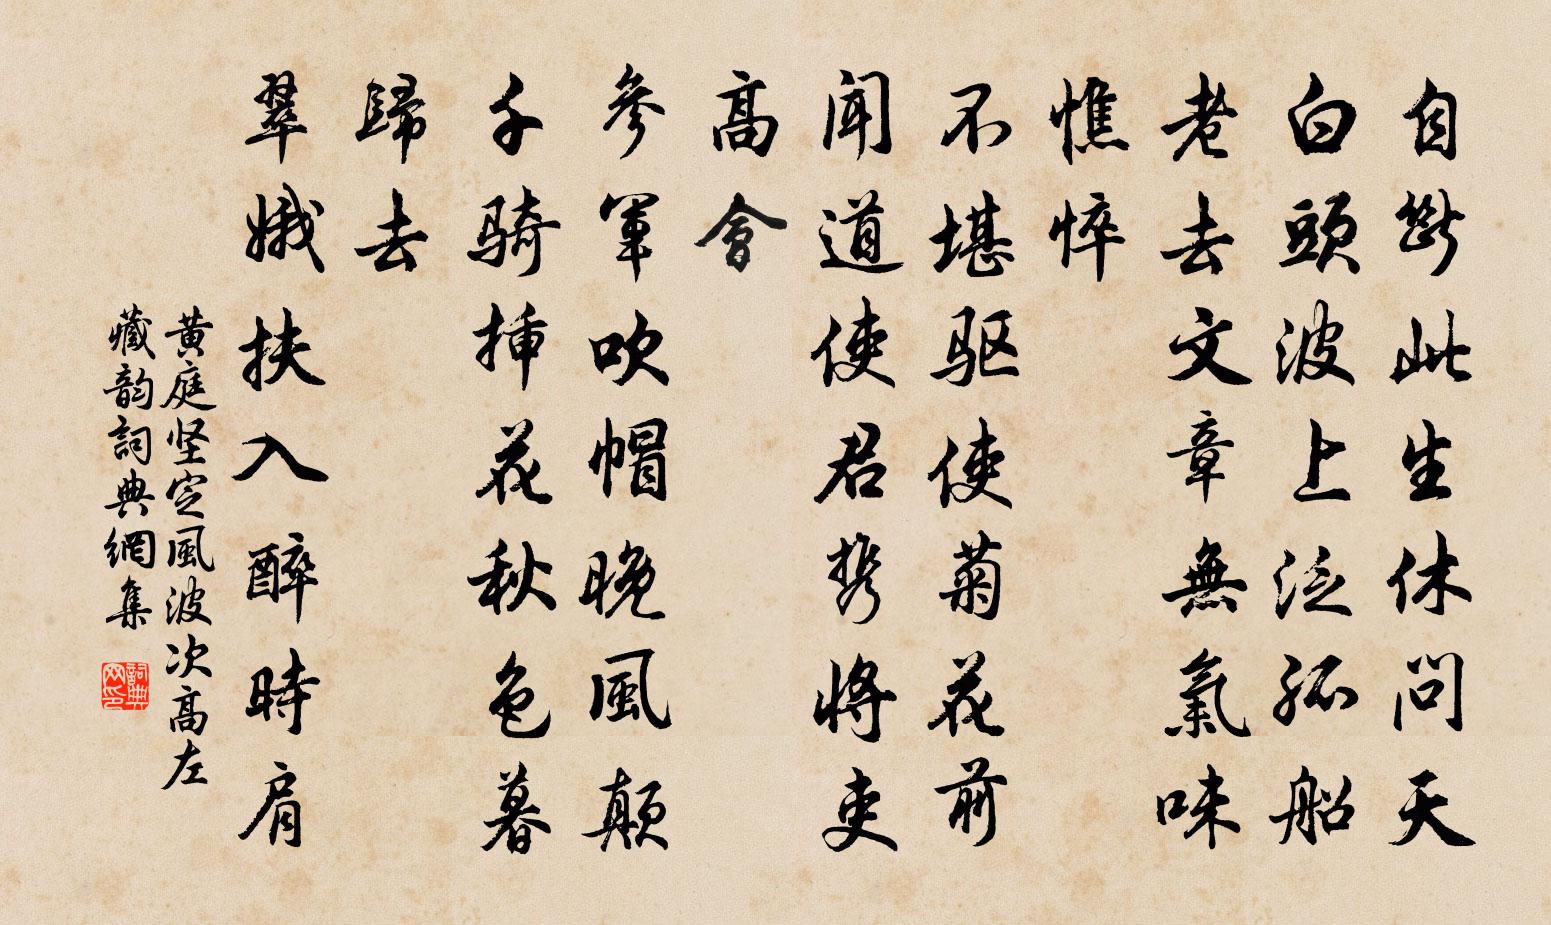 自断此生休問天
白頭波上泛孤船
老去文章無氣味
憔悴
不堪驱使菊花前
闻道使君携将吏
高會
參軍吹帽晚風颠
千骑插花秋色暮
歸去
翠娥扶入醉時肩
黄庭坚定風波次高左
藏韵詞典網集
詞典网印